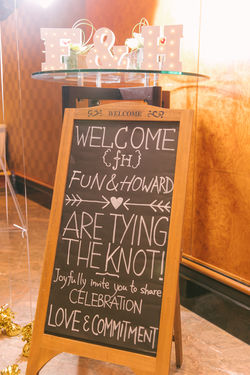 F & H
WELCOME
WELCOME
{fH}
FUN & HOWARD
ARE TYING
THE KNOT!
Joyfully invite you to share
CELEBRATION
LOVE & COMMITMENT